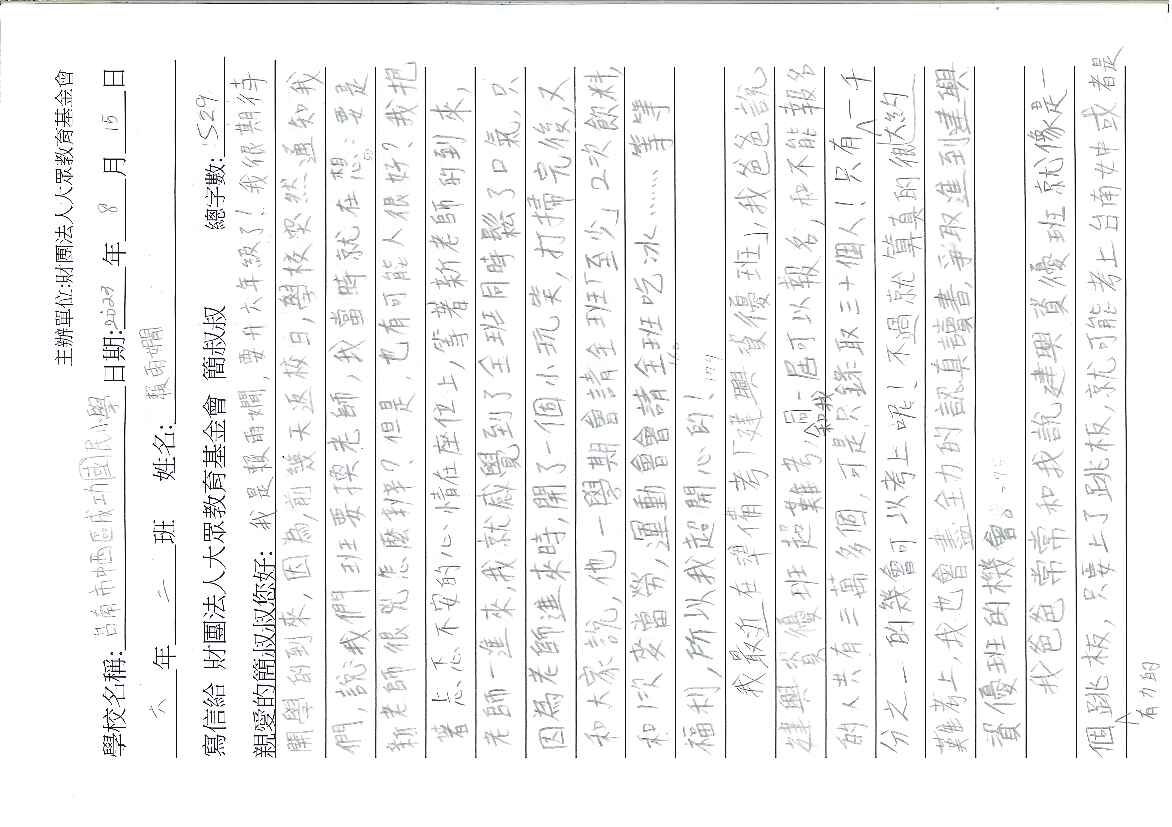 主辦單位:財團法人大眾教育基金會
學校名稱:台南市中西區成功國民小學 日期:2022年8月15日
六年二班 姓名:報雨嫻
寫信給 財團法人大眾教育基金會 簡叔叔 總字數:529
親愛的簡叔叔您好: 我是報雨嫻,要升六年級了!我很期待
開學的到來,因為,前幾天返校日,學校突然通知我
們,說我們班要換老師,我當時就在想:要是
新老師很兇怎麼辦?但是,也有可能人很好?我抱
著忐忑不安的心情在座位上,等著新老師的到來,
老師一進來,我就感覺到了全班同時鬆了口氣,只
因為老師進來時,開了一個小玩笑,打掃完後,又
和大家說,他一學期會請全班「至少」2次飲料,
和1次麥當勞,運動會會請全班吃冰……等等
福利,所以我超開心的!
我最近在準備考「建興資優班」我爸爸說
建興資優班超難考,和我同一屆可以報名,和不能報名
的人共有三萬多個,可是只錄取三十個人!只有大約一千
分之一的幾會可以考上呢!不過就算真的很
難考上,我也會盡全力的認真讀書,爭取進到建興
資優班的機會。
我爸爸常常和我說建興資優班就像是一
個有力的跳板,只要上了跳板,就可能考上台南女中或者是